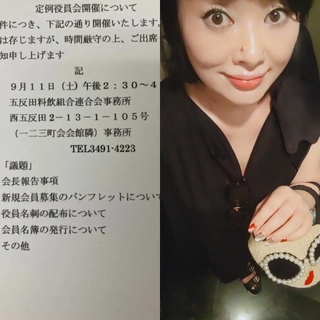 定例役員会開催について
件につき、下記の通り開催いたします。
は存じますが、時間厳守の上、ご出席
知申し上げます
記
9月11日(土)午後2:30〜4
五反田料飲組合連合会事務所
西五反田2-13-1-105号
(一二三町会会館隣)事務所
TEL3491-4223
「議題」
会長報告事項
新規会員募集のパンフレットについて
役員名刺の配布について
会員名簿の発行について
その他